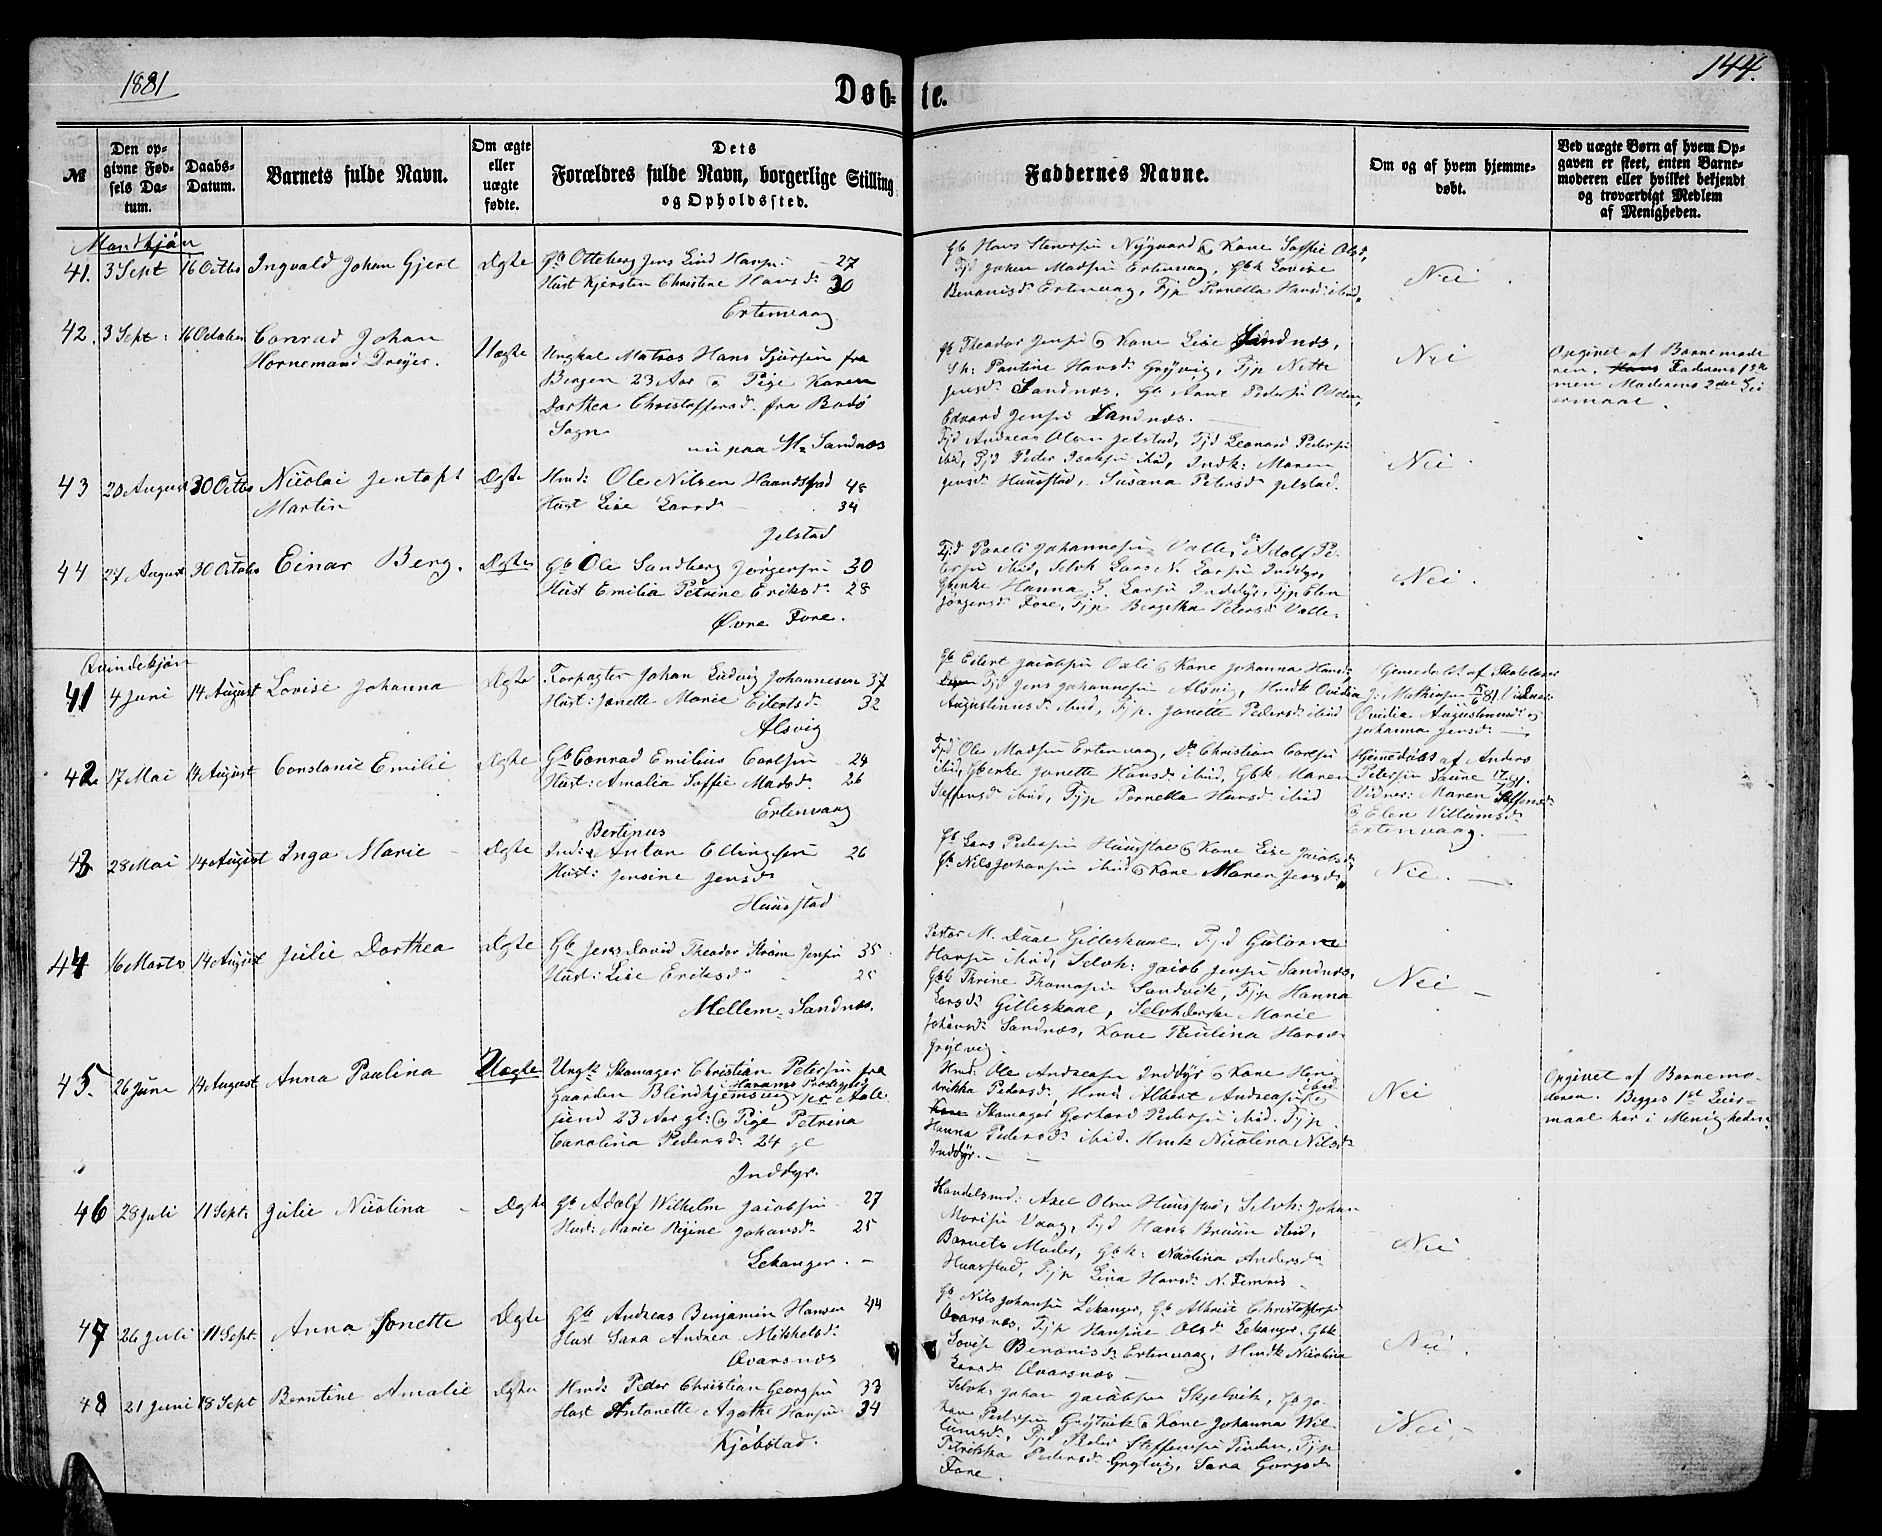 1881
144.
Døb-te.
№
Den op-
givne Fød-
sels Da-
tum.
Daabs-
Datum.
Barnets fulde Navn.
Om ægte
eller
uægte
fødte.
Dets
Forældres fulde Navn, borgerlige Stilling
og Opholdssted.
Faddernes Navne.
Om og af hvem hjemme-
døbt.
Ved uægte Børn af hvem Op-
gaven er skeet, enten Barne-
moderen eller hvilket bekjendt
og troværdigt Medlem
af Menigheden.
Mandkjøn
41. 3 Sept 16 Octbr Ingvald Johan Gjert Ægte
Gb Otteberg Jens Lind Hansen 27
Hust Kjersten Christine Hansd: 30
Ertenvaag
Gb Hans Steversen Nygaard & Kone Soffie Olsd,
Tjd Johan Madsen Ertenvaag, Gbk Lovise
Benonisd: Ertenvaag, Tjp Pernella Hansd: ibid,
Nei
42. 3 Sept: 16 October Conrad Johan
Hornemand Dreyer. Uægte
Ungkal Matros Hans Sjursen fra
Bergen 23 Aar & Pige Karen
Dorthea Christoffersd. fra Bodø
Sogn
nu paa M: Sandnæs
Gb Theodor Jensen & Kone Lise Sandnæs,
Sh: Pauline Hansd: Grytvig, Tjp Nette
Jensd: Sandnæs, Gb Arnt Pedersen
Edvard Jensen Sandnæs.
Nei
Opgivet af Barnemode
ren. Hans Faderens 1ste
men Moderens 2det Lei
ermaal.
43 20 August 30 Octbr Nicolai Jentoft
Martin Ægte
Hmd: Ole Nilsen Haandstad 48
Hust Lise Larsd 34
Jelstad
Tjd Andreas Olsen Jelstad, Tjd Leonard Pedersen
ibid, Tjd Peder Isaksen ibid, Indk: Maren
Jensd: Huusstad, Susana Petersd: Jelstad.
Nei
44 27 August 30 Octobr Einar Berg. Ægte
Gb Ole Sandberg Jørgensen 30
Hust Emilia Petrine Eriksd: 28
Øvre Fore.
Tjd Pareli Johannesen Valle, Do Adolf Pe-
tersen ibid, Selvh Lars N. Larsen Inddyr,
Gbenke Hanna S. Larsen Inddyr, Tjp Elen
Jørgensd: Fore, Tjp Bergitha Petersd Valle.
Nei
Qvindekjøn
41 4 Juni 14 August Lovise Johanna Ægte
Forpagter Johan Ludvig Johannesen 37
Hust: Jonette Marie Eilertsd: 32
Alsvig
Gb Eilert Jacobsen Oxli & Kone Johanna Hansd,
Tjd Jens Johannesen Alsvig, Hmdk Ovidia
Augustinusd: ibid, Tjp. Jonette Pedersd: ibid
Hjemedøbt af Skolelærer
J. Mathisen 5/6 81 Vidner:
Ovidia Augustinusd: og
Johanna Jensd:
42 17 Mai 14 August Constanse Emilie Ægte
Gb Conrad Emilius Carlsen 24
Hust: Amalia Soffie Madsd: 26
Ertenvaag
Tjd Ole Madsen Ertenvaag, Do Christian Carlsen
ibid, Gbenke Jonette Hansd: ibid, Gbk Maren
Steffensd: ibid, Tjp Pernella Hansd: ibid
Hjemedøbt af Anders
Petersen Saune 17/7 81.
Vidner: Maren Steffensd:
& Elen Villumsd:
Ertenvaag.
43 28 Mai 14 August Inga Marie Ægte
Bertinus
Ind: Anton Ellingsen 26
Hust: Jensine Jensd
Huusstad
Gb Lars Pedersen Huusstad & Kone Lise Jacobsd:
Gb Nils Johansen ibid & Kone Maren Jensd:
Nei.
44 16 Marts 14 August Julie Dorthea Ægte
Gb Jens David Theodor Strøm Jensen 35
Hust: Lise Eriksd: 25
Mellem-Sandnæs.
Pastor M. Daae Gilleskaal, Tjd
Hansen ibid, Selvh: Jacob Jensen Sandnæs,
Gbk Thrine Thomasen Sandvik, Tjp Hanna
Larsd: Gilleskaal, Selvh Marie
Johansd: Sandnæs, Kone Paulina Hansd:
Grytvig.
Nei
45. 26 Juni 14 August Anna Paulina Uægte
Ungk. Skomager Christian Petersen fra
Gaarden Blindhjemsvig Harams Prestegjeld pr Aale
sund 23 Aar gl: & Pige Petrina
Carolina Pedersd: 24 gl
Inddyr.
Hmd. Ole Andreasen Inddyr & Kone Hen
rikka Pedersd: Hmd: Albert Andreasen ibid &
Skomager Gerhard Pedersen ibid. Tjp.
Hanna Pedersd: ibid. Hmk Nicolina Nilsd:
Inddyr.
Nei
Opgivet af Barnemo-
deren. Begges 1st Leier-
maal her i Menigheden.
46 28 Juli 11 Sept: Julie Nicolina Ægte
Gb Adolf Wilhelm Jacobsen 27
Hust: Marie Regine Johansd: 25
Lekanger.
Handelsmd: Axel Olsen Huusstad, Selvh: Johan
Morisen Vaag, Tjd Hans Bruun ibid,
Barnets Moder, Gbk: Nicolina Andersd:
Huusstad, Tjp Lina Hansd: N. Femris
Nei
47 26 Juli 11 Sept. Anna Jonette Ægte
Gb Andreas Benjamin Hansen 44
Hust Sara Andrea Mikkelsd:
Qvarsnæs
Gb Nils Johansen Lekanger, Gb Albrigt Christoffersen
Qvarsnæs, Tjp Hansine Olsd: Lekanger. Gbk
Lovise Benonisd: Ertenvaag, Hmdk Nicolina
Larsd: Qvarsnæs
Nei.
48 21 Juni 18 Sept Berntine Amalie Ægte
Hmd: Peder Christian Georgsen 33
Hust Antonette Agathe Hansen 34
Kjøbstad.
Selvh: Johan Jacobsen Skjelvik, Gb Jo-
han Pedersen Grytvik & Kone Johanna Wil-
lumsd:, Tjd Peder Steffensen Finden, Tjp
Petrikka Pedersd: Grytvig, Sara Georgsd:
Fore.
Nei,